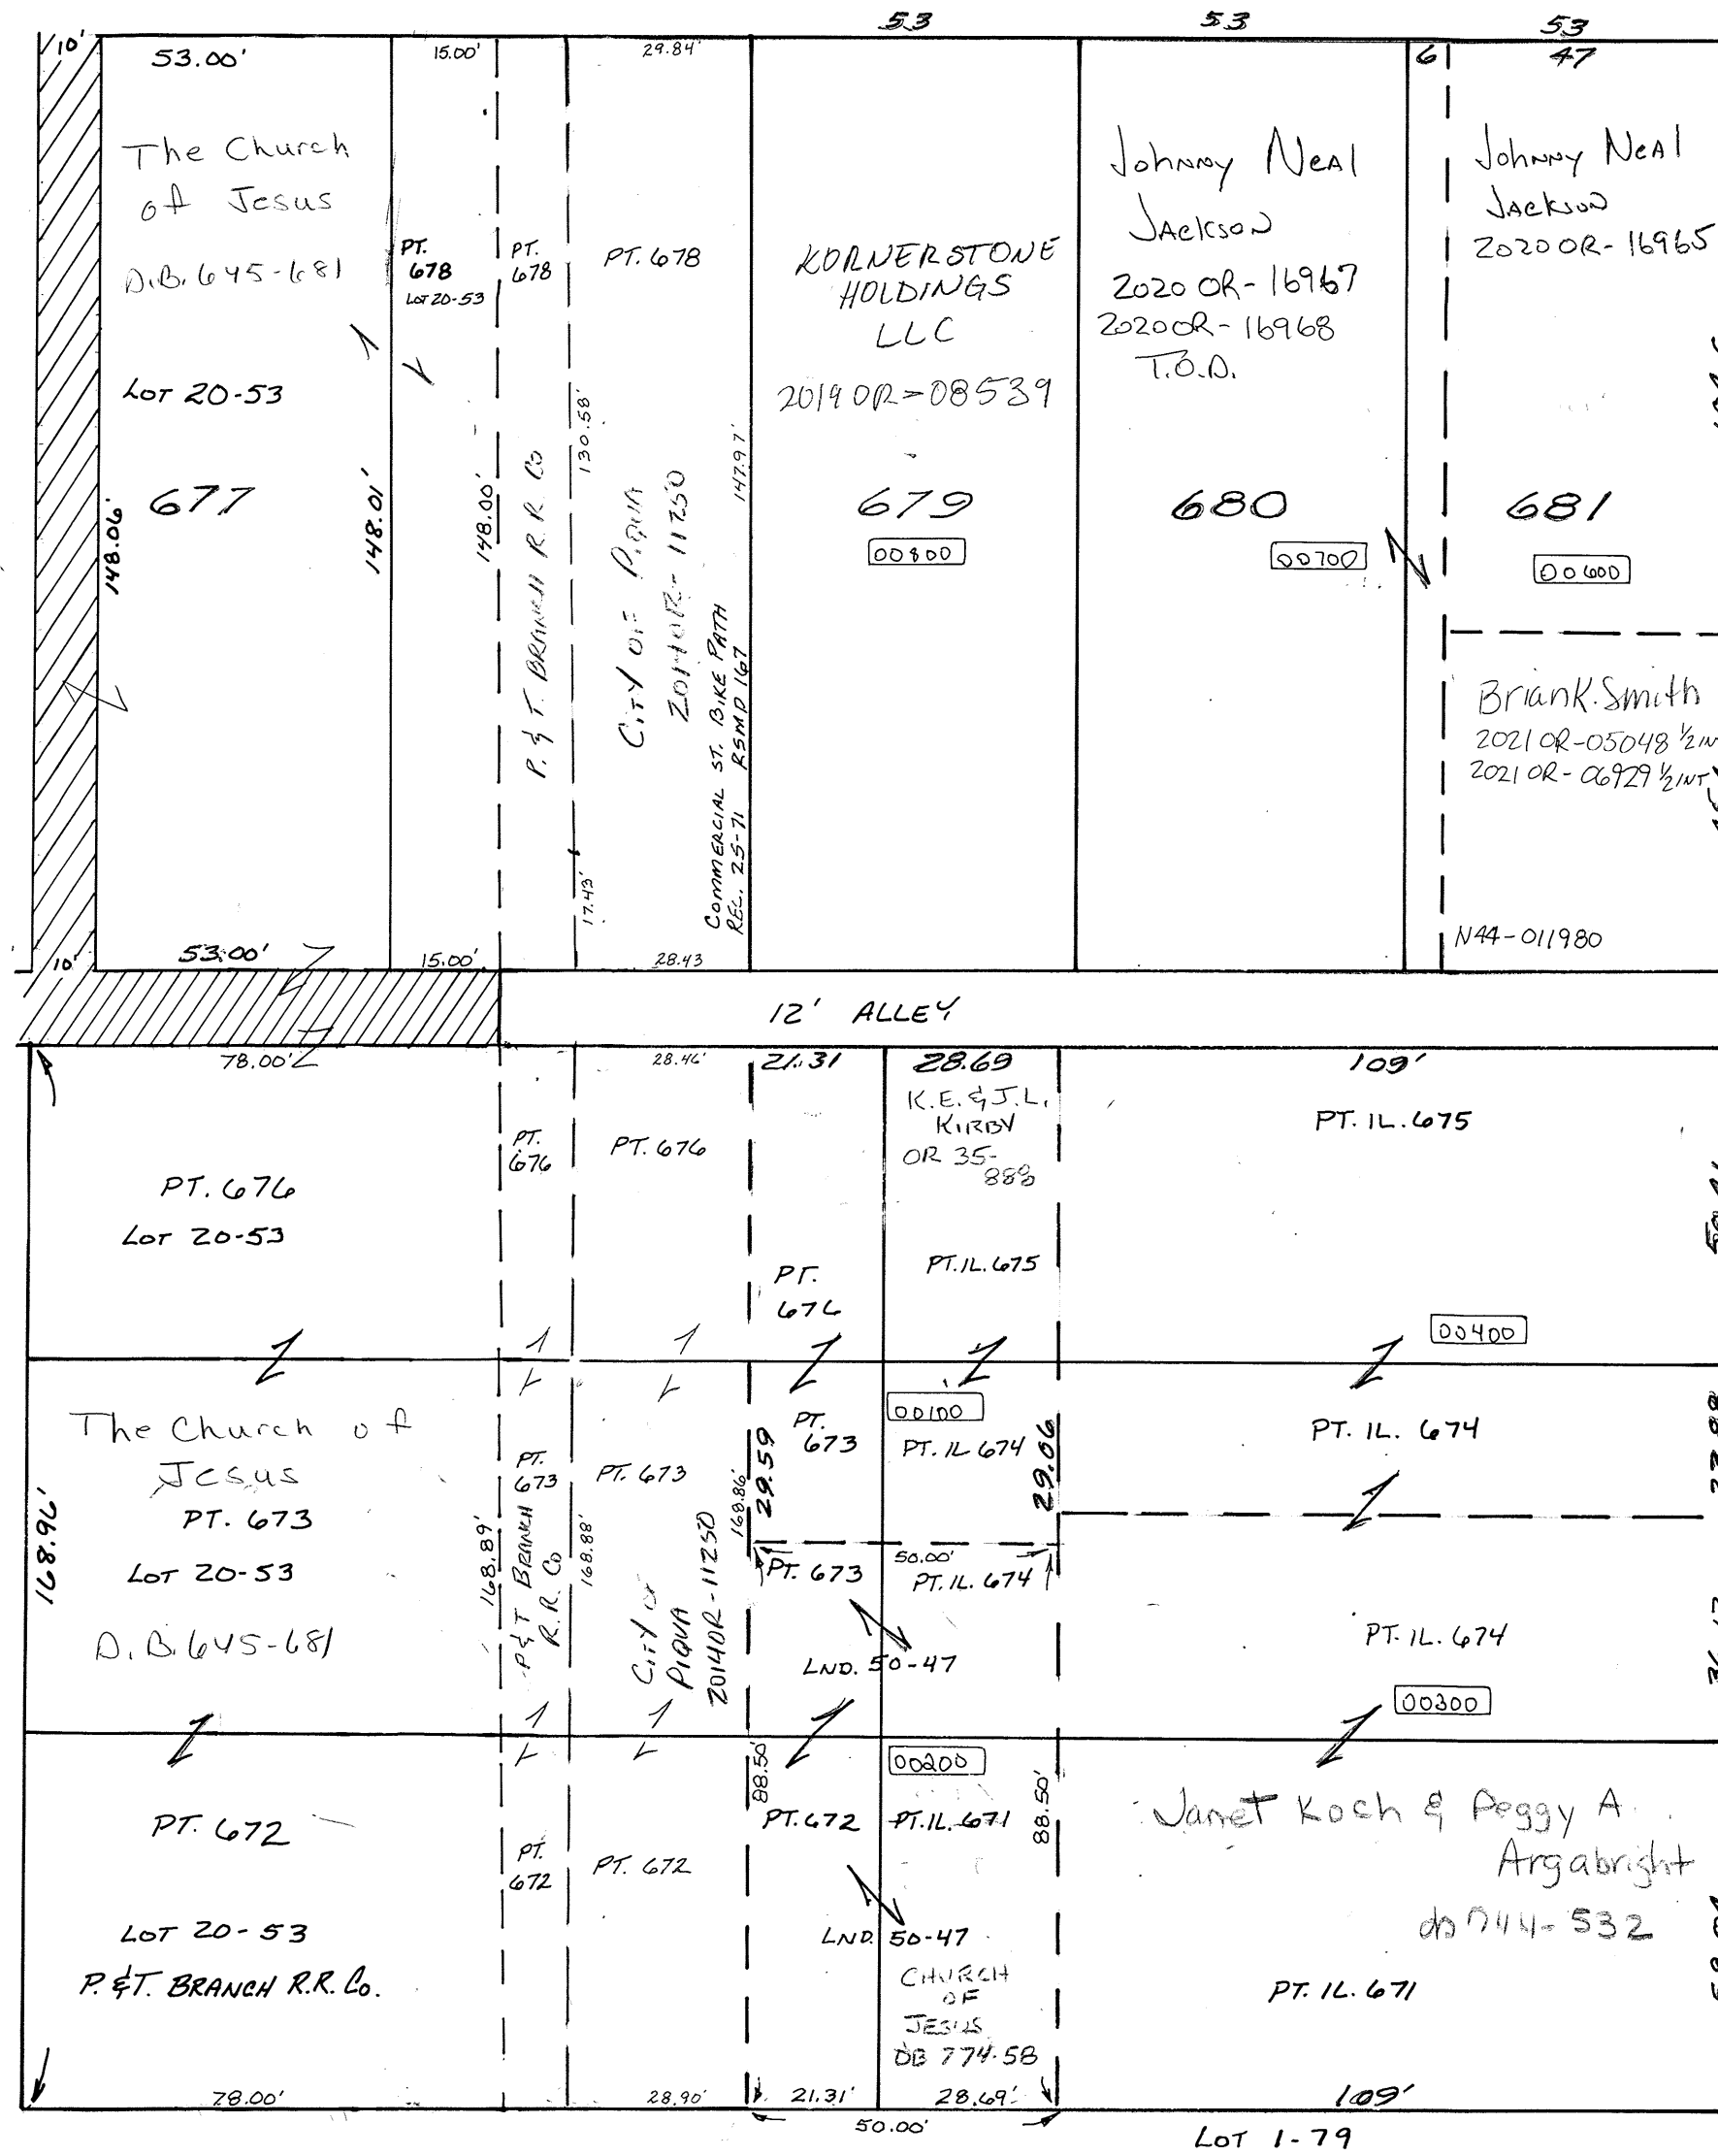 53
53
53
10'
53.00'
15.00'
29.84'
6
47
The Church
of Jesus
D.B. 645-681
LOT 20-53
677
148.06'
148.01'
PT.
678
LOT 20-53
148.00'
PT.
678
P. & T. BRANCH R. R. Co
130.58'
17.43'
PT. 678
CITY OF PIQUA
2014OR-11250
COMMERCIAL ST. BIKE PATH
REC. 25-71 RSMD 167
147.97'
KORNERSTONE
HOLDINGS
LLC
2019 OR-08539
679
00800
Johnny Neal
Jackson
2020 OR-16967
2020 OR-16968
T.O.D.
680
00700
Johnny Neal
Jackson
2020 OR-16965
681
00600
Brian K. Smith
2021 OR-05048 ½ INT
2021 OR-06929 ½ INT
N44-011980
10'
53.00'
15.00'
28.43
12' ALLEY
78.00'
28.46'
21.31
28.69
109'
K.E. & J.L.
KIRBY
OR 35-
888
PT. IL. 675
PT.
676
PT. 676
PT. 676
LOT 20-53
PT. IL. 675
PT.
676
00400
The Church of
Jesus
PT. 673
LOT 20-53
D.B. 645-681
168.96'
168.89'
PT.
673
P & T BRANCH
R.R. Co
168.88'
PT. 673
CITY OF
PIQUA
2014OR-11250
168.86'
29.59
PT.
673
00100
PT. IL 674
29.06
PT. IL. 674
50.00'
PT. 673
PT. IL. 674
PT. IL. 674
LND. 50-47
00300
PT. 672
LOT 20-53
P. & T. BRANCH R.R. Co.
PT.
672
PT. 672
88.50'
00200
PT. 672
PT. IL. 671
88.50'
LND. 50-47
CHURCH
OF
JESUS
DB 774-58
Janet Koch & Peggy A.
Argabright
db 744-532
PT. IL. 671
78.00'
28.90'
21.31'
28.69'
109'
50.00'
LOT 1-79